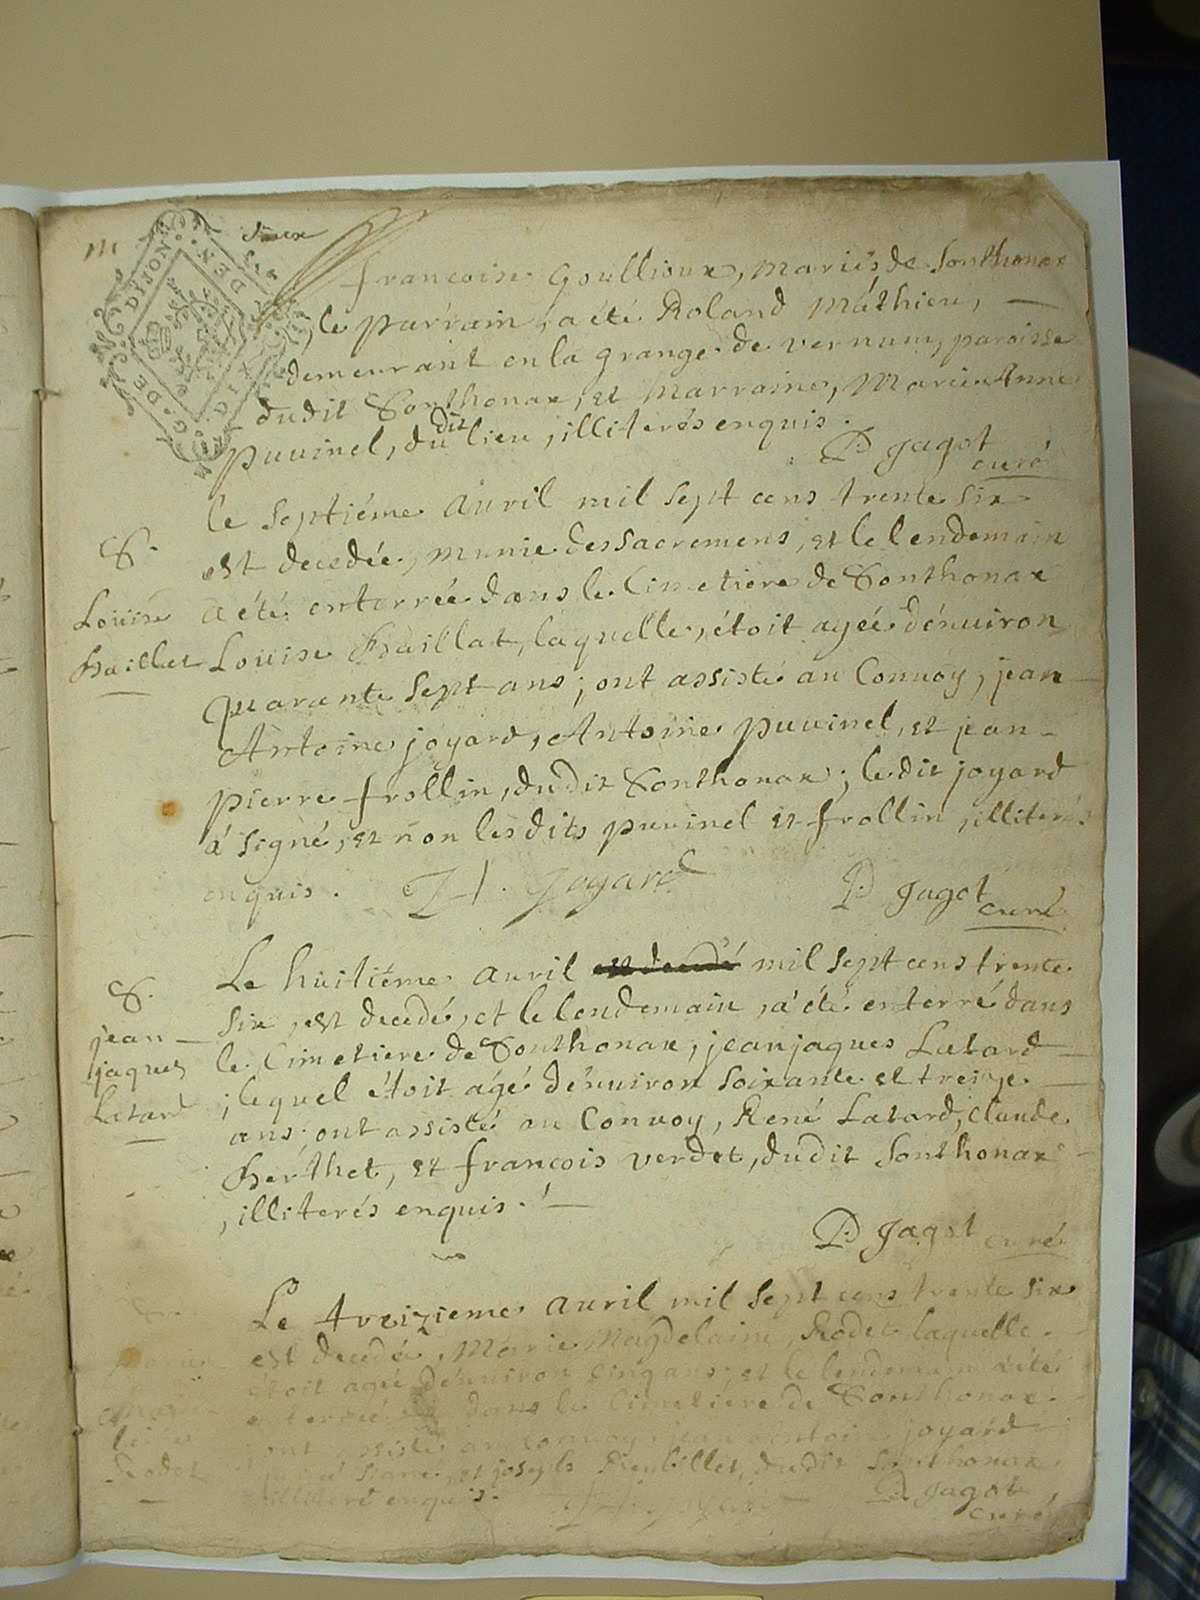 G. DE DIJON. GEN. DE
francoise Goullioux, mariés de Sonthonax
, le parrain, a été Roland Mathieu, —
demeurant en la grange de vernum, paroisse
dudit Sonthonax, et marraine, Marie Anne
puvinel, du dit lieu, illiterés enquis.
P. Jagot
curé
le septiéme avril mil sept cens trente six
S.
est decedée, munie des sacremens, et le lendemain
Louise
a été enterrée dans le Cimetiere de Sonthonax
Louise Baillat, laquelle, étoit agée dénuiron
quarante sept ans; ont assisté au Convoy, jean
Antoine joyard, Antoine puvinel, et jean-
pierre frollin, dudit Sonthonax; le dit joyard
á signé, et non les dits puvinel et frollin, illiterés
enquis. Joyard
P. Jagot
curé
Le huitiéme avril est decedé mil sept cens trente
S.
six, est decedé, et le lendemain, a été enterré dans
jean —
jaques
Latard
le Cimetiere de Sonthonax, jean jaques Latard —
; lequel étoit agé dénuiron soixante et treize
ans; ont assisté au Convoy, René Latard, Claude
Berthet, et francois verdet, dudit Sonthonax
, illiterés enquis. —
P. Jagot
curé
Le treizieme avril mil sept cens trente six
est decedée, Marie Magdelaine Rodet laquelle
étoit agée dénuiron cinq ans, et le lendemain a été
enterrée dans le Cimetiere de Sonthonax
Rodet
ont assisté au Convoy, jean antoine joyard
signé, et joseph dudit Sonthonax
illiteré enquis.
P. Jagot
curé